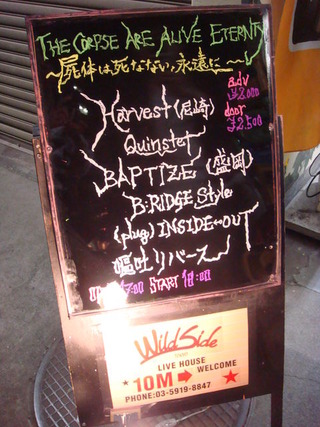 THE CORPSE ARE ALIVE ETERNTY
〜屍体は死なない、永遠に〜
adv
¥2.000
door
¥2.500
Harvest(尼崎)
Quinstet
BAPTIZE(盛岡)
B:RIDGE Style
(plug) INSIDE→OUT
嘔吐リバース
17:00 START 18:00
Wild Side
TOKYO
LIVE HOUSE
WELCOME
★10M➡★
PHONE:03-5919-8847